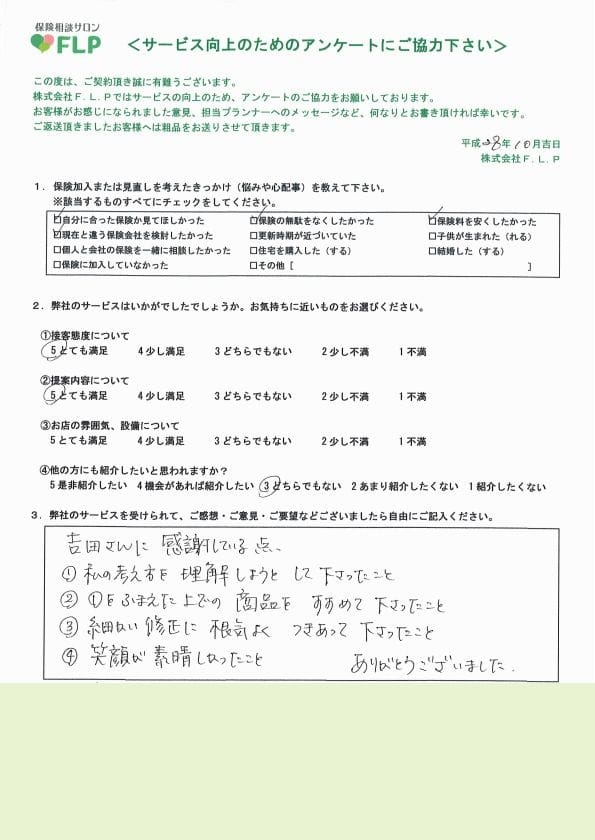 保険相談サロン
FLP
＜サービス向上のためのアンケートにご協力下さい＞
この度は、ご契約頂き誠に有難うございます。
株式会社Ｆ．Ｌ．Ｐではサービスの向上のため、アンケートのご協力をお願いしております。
お客様がお感じになられました意見、担当プランナーへのメッセージなど、何なりとお書き頂ければ幸いです。
ご返送頂きましたお客様へは粗品をお送りさせて頂きます。
平成28年10月吉日
株式会社Ｆ．Ｌ．Ｐ
１．保険加入または見直しを考えたきっかけ（悩みや心配事）を教えて下さい。
※該当するものすべてにチェックをしてください。
☑自分に合った保険か見てほしかった ☑保険の無駄をなくしたかった ☑保険料を安くしたかった
☑現在と違う保険会社を検討したかった □更新時期が近づいていた □子供が生まれた（れる）
□個人と会社の保険を一緒に相談したかった □住宅を購入した（する） □結婚した（する）
□保険に加入していなかった □その他［ ］
２．弊社のサービスはいかがでしたでしょうか。お気持ちに近いものをお選びください。
①接客態度について
５とても満足 ４少し満足 ３どちらでもない ２少し不満 １不満
②提案内容について
５とても満足 ４少し満足 ３どちらでもない ２少し不満 １不満
③お店の雰囲気、設備について
５とても満足 ４少し満足 ３どちらでもない ２少し不満 １不満
④他の方にも紹介したいと思われますか？
５是非紹介したい ４機会があれば紹介したい ３どちらでもない ２あまり紹介したくない １紹介したくない
３．弊社のサービスを受けられて、ご感想・ご意見・ご要望などございましたら自由にご記入ください。
吉田さんに 感謝している点、
① 私の考え方を 理解しようと して 下さったこと
② ①をふまえた上での 商品を すすめて 下さったこと
③ 細かい 修正に 根気よく つきあって 下さったこと
④ 笑顔が 素晴しかったこと ありがとうございました．